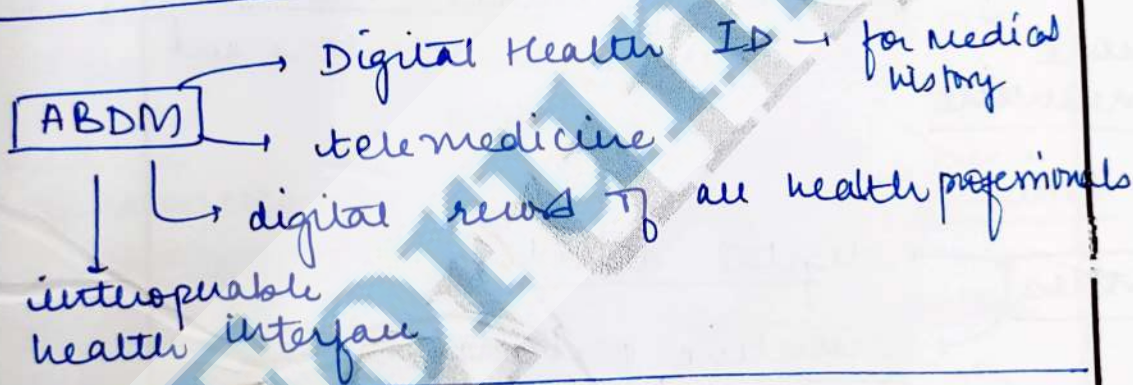 Digital Health ID → for medical
history
ABDM
telemedicine
digital record of all health professionals
interoperable
health interface
forum